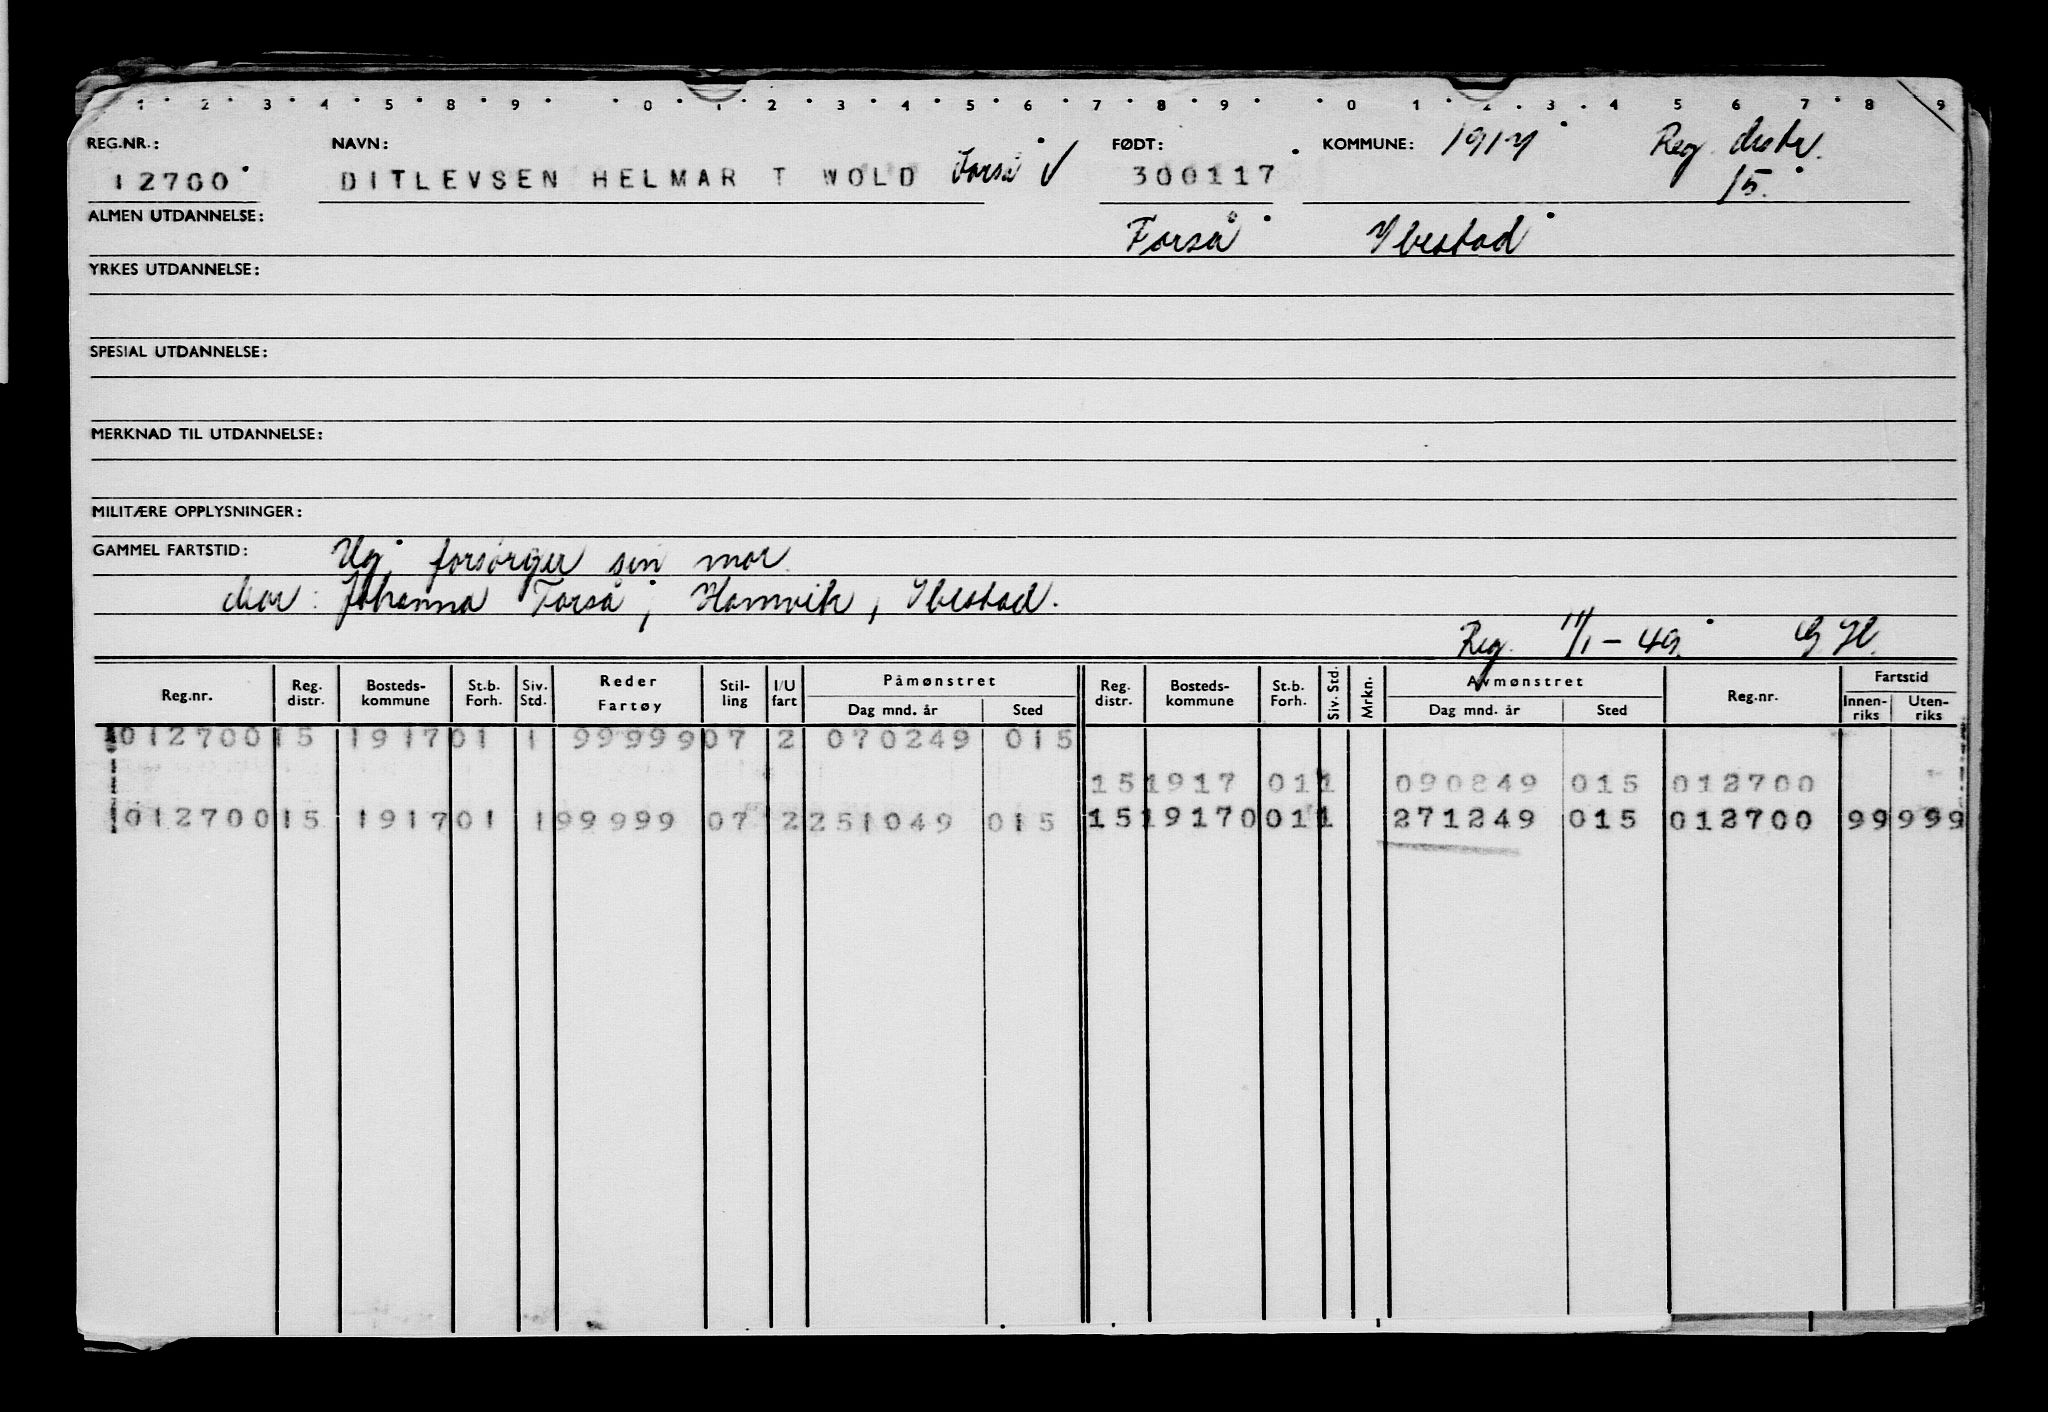 1 2 3 4 5 8 9 0 1 2 3 4 5 6 7 8 9 0 1 2 3 4 5 6 7 8 9
REG.NR.: NAVN: FØDT: KOMMUNE: 1917 Reg. distr.
12700 DITLEVSEN HELMAR T WOLD Forså √ 300117 15.
ALMEN UTDANNELSE: Forså Ibestad
YRKES UTDANNELSE:
SPESIAL UTDANNELSE:
MERKNAD TIL UTDANNELSE:
MILITÆRE OPPLYSNINGER:
GAMMEL FARTSTID: Ug. forsørger sin mor.
Mor: Johanna Forså, Hamvik, Ibestad.
Reg. 11/1-49.
Påmønstret Avmønstret Fartstid
Reg.nr. Reg. distr. Bosteds-kommune St.b. Forh. Siv. Std. Reder Fartøy Stil-ling I/U fart Dag mnd. år Sted Reg. distr. Bosteds-kommune St.b. Forh. Siv. Std. Mrkn. Dag mnd. år Sted Reg.nr. Innen-riks Uten-riks
012700 15 1917 01 1 99999 07 2 070249 015
15 1917 01 1 090849 015 012700
012700 15 1917 01 1 99999 07 2 251049 015 15 19170 01 1 271249 015 012700 99 999